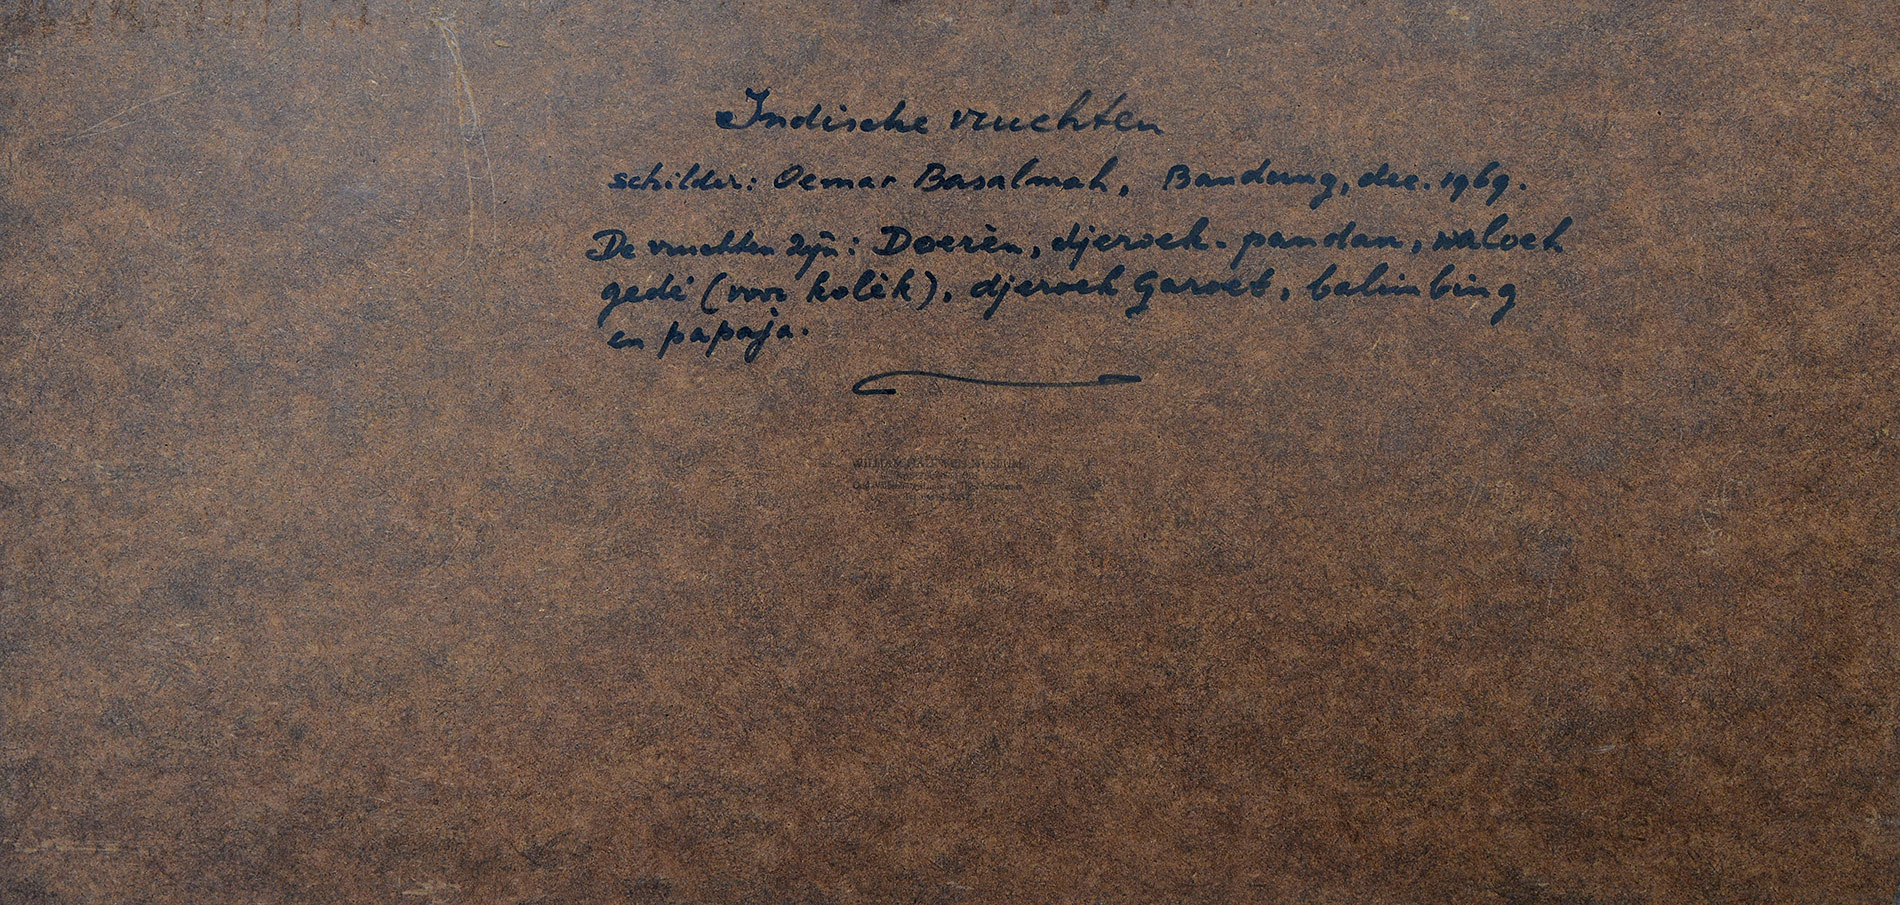 Indische vruchten
schilder: Oemar Basalmah, Bandung, dec. 1969.
De vruchten zijn: Doerèn, djeroek-pandan, waloeh
gedé (voor kolèk), djeroek Garoet, balimbing
en papaja.
MUSEUM